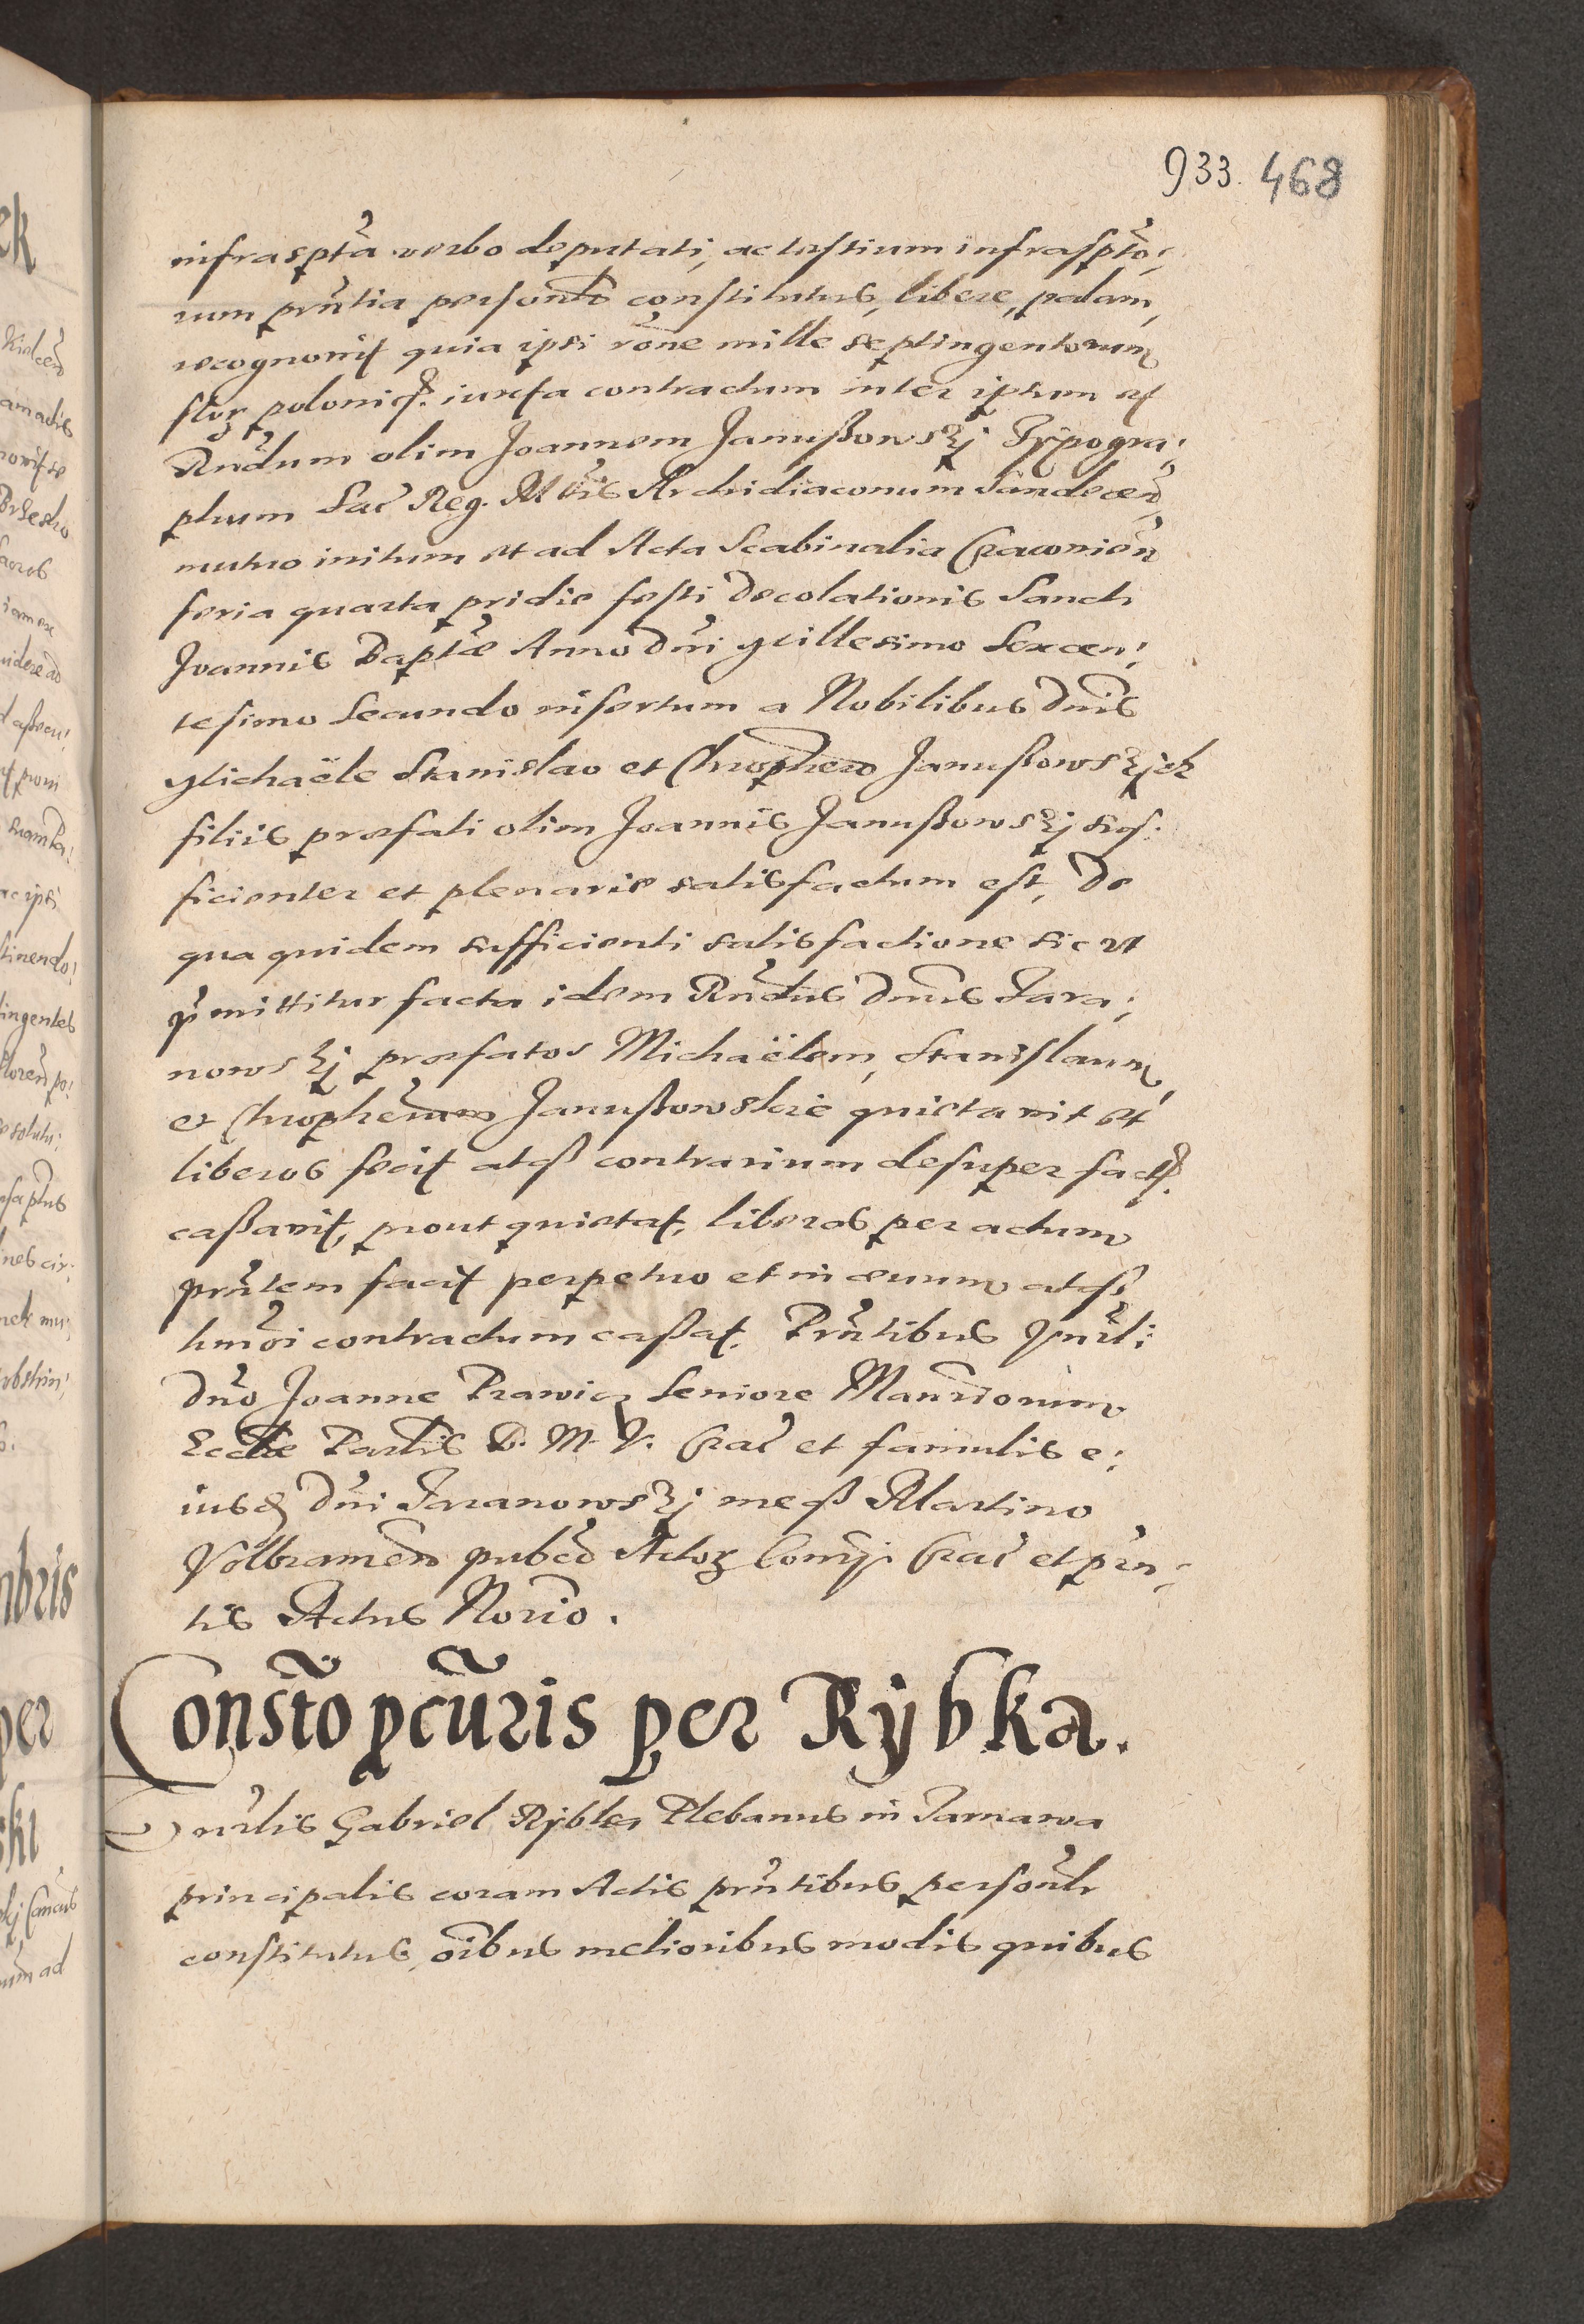 933. 468
infrasptã verbo deputati, ac testium infrasptõ:
rum prñtia personlr constitutus, libere, palam,
recognovit quia ipsi rõne mille septingentorum
flor polonicz. iuxta contractum inter ipsum et
Rñdum olim Joannem Januszowskj Typogra:
phum Sac Reg. Mttis Archidiaconum Sandecen
mutuo initum et ad Acta Scabinalia Cracovien
feria quarta pridie festi Decolationis Sancti
Joannis Baptæ Anno Dñi Millesimo Sexcen:
tesimo Secundo insertum a Nobilibus Dnis
Michaële Stanislao et Chrophero Januszowskich
filiis præfati olim Joannis Januszowskj suf:
ficienter et plenarie satisfactum est, De
qua quidem sufficienti satisfactione sic ut
pmittitur facta idem Rñdus Dñus Tara:
nowskj præfatos Michaëlem, Stanislaum,
et Chropherum Januszowskie quietavit et
liberos fecit atqz contrarium desuper factz.
cassavit, prout quietat, liberos per actum
prñtem facit perpetuo et in ævum atqz
hmõi contractum cassat. Prñtibus Vnrli:
dño Joanne Brawicz Seniore Mansionum
Ecclæ Partis B. M. V. Crac et famulis e:
iusd Dñi Taranowskj meqz Martino
Volbramen pubco Actor Consj. Crac et prn:
tis Actus Norio.
Constõ pcũris per Rybka.
Vnrlis Gabriel Rybka Plebanus in Tarnawa
principalis coram Actis prñtibus personlr
constitutus, oibus melioribus modis quibus